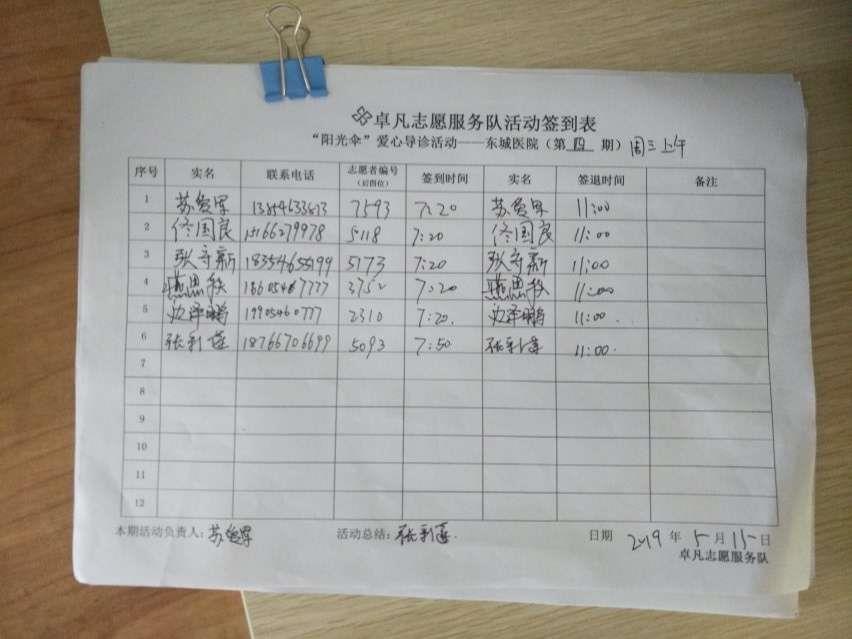 卓凡志愿服务队活动签到表
“阳光伞”爱心导诊活动——东城医院（第四期）周三上午
序号 实名 联系电话 志愿者编号（后四位） 签到时间 实名 签退时间 备注
1 7593 7:20 11:00
2 佟国良 5118 7:20 佟国良 11:00
3 张守新 5173 7:20 张守新 11:00
4 3752 7:20 11:00
5 2310 7:20. 11:00.
6 张利莲 18766706699 5093 7:50 张利莲 11:00.
7
8
9
10
11
12
本期活动负责人： 活动总结：张利莲. 日期 2019年5月15日
卓凡志愿服务队